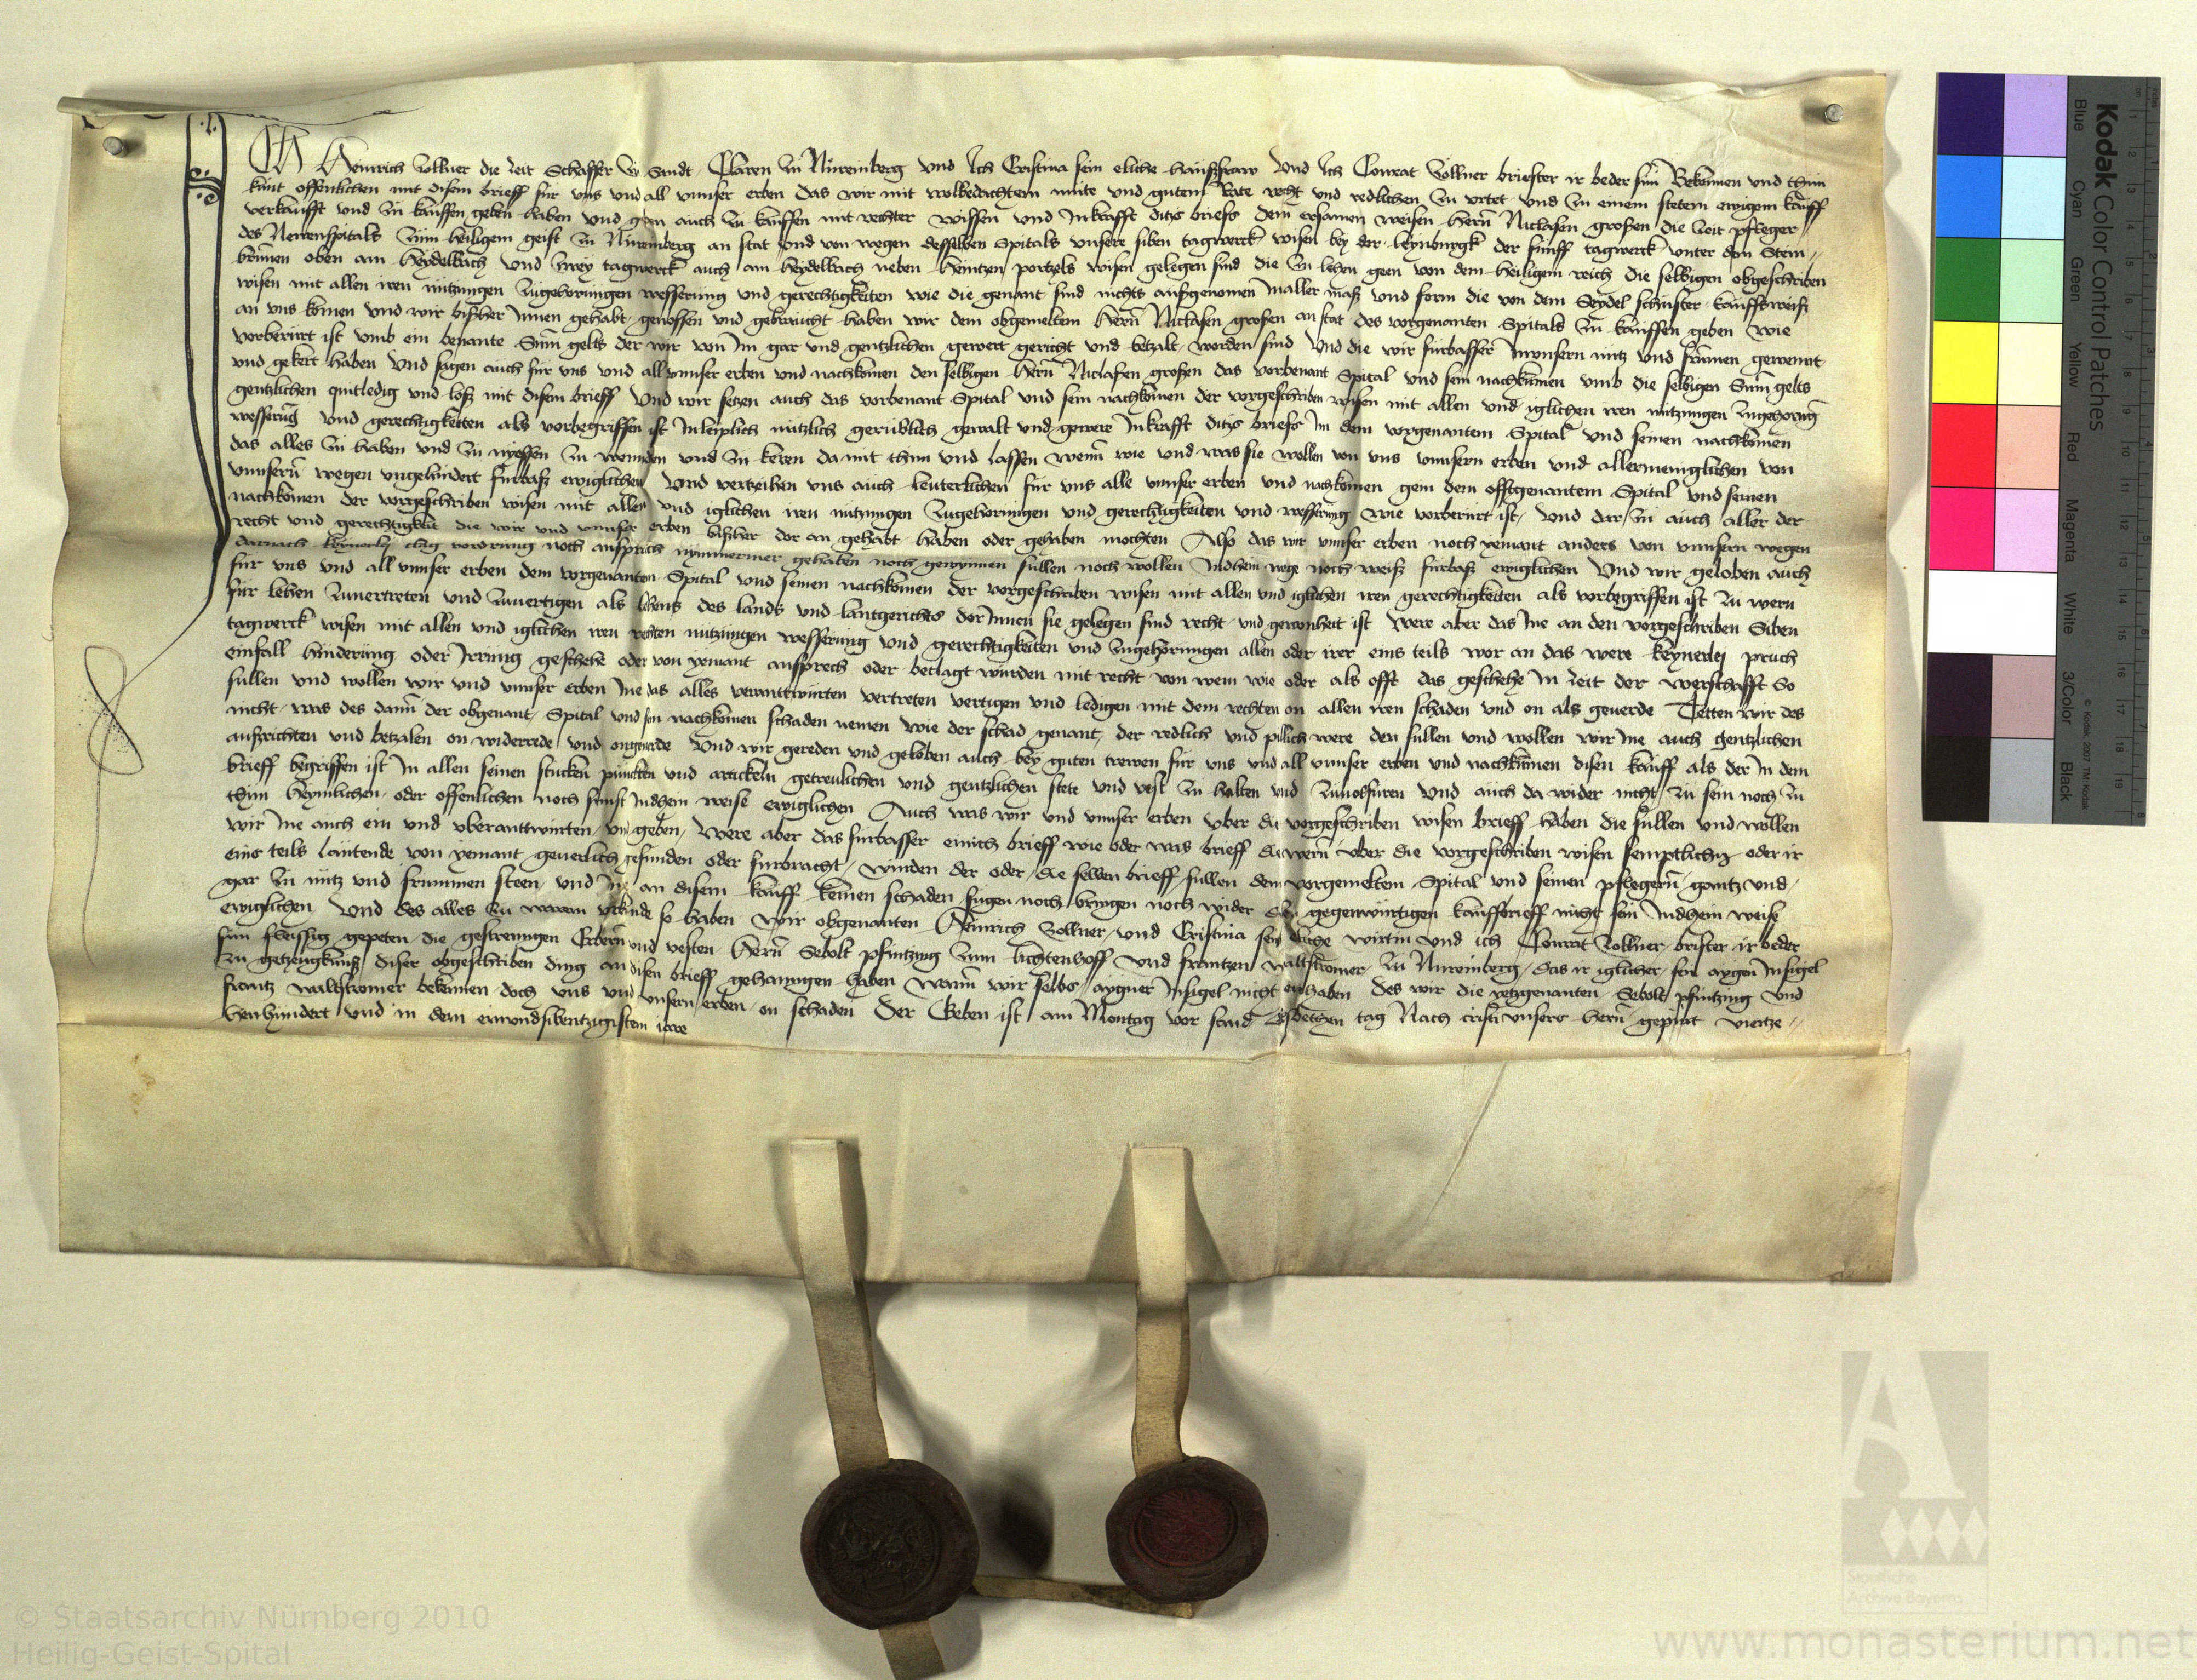 Ich Heinrich Zollner die zeit Schaffer zu Sandt Claren zu Nuremberg vnd Ich Cristina sein eliche hausfraw Vnd Ich Conrat Zollner briester ir beder sun Bekennen vnd thun
kunt offenlichen mit disem brieff für vns vnd all vnnser erben das wir mit wolbedachtem mute vnd gutem Rate recht vnd redlichen zu vrtet vnd zu einem stetem ewigem kauff
verkaufft vnd zu kauffen geben haben vnd geben auch zu kauffen mit rechter wissen vnd Inkrafft ditzs briefs dem ersamen weisen hern Niclasen großen die zeit pfleger
des Newenspitals zum heiligem geist zu Nuremberg an stat vnd von wegen desselben Spitals vnsere siben tagwerck wisen bey der leynburgk der funff tagwerck vnter dem Stein
brunen oben am heydelbach vnd zwey tagwerck auch am heydelbach neben heintzen portzels wisen gelegen sind die zu lehen geen von dem heiligem reich die selbigen obgeschriben
wisen mit allen iren nutzungen zugehorungen wesserung vnd gerechtigkeiten wie die genant sind nichts außgenomen Inaller maß vnd form die von dem Seydel schuster kauffsweiß
an vns komen vnd wir bißher Innen gehabt genossen vnd gebraucht haben wir dem obgemeltem hern Niclasen großen an stat des vorgenanten Spitals zu kauffen geben wie
vorberurt ist vmb ein benante Sum gelts der wir von Im gar vnd gentzlichen gewert gericht vnd betzalt worden sind Vnd die wir fürbasser Invnsern nutz vnd frumen gewennt
vnd gekert haben Vnd sagen auch für vns vnd all vnnser erben vnd nachkomen den selbigen hern Niclasen großen das vorbenant Spital vnd sein nachkumen vmb die selbigen Sum gelts
gentzlichen quitledig vnd loß mit disem brieff Vnd wir setzen auch das vorbenant Spital vnd sein nachkomen der vorgeschriben wysen mit allen vnd iglichen iren nutzungen zugehorung
wesserug vnd gerechtigkeiten als vorbegriffen ist Inleiplich nutzlich gerublich gewalt vnd gewere Inkrafft ditzs briefs Im dem vorgenantem Spital vnd seinen nachkomen
das alles zu haben vnd zu nyessen zu wennden vnd zu keren da mit thun vnd lassen wenn wie vnd was sie wollen von vns vnnsern erben vnd allermeniglichen von
vnnsern wegen vngehindert fürbaß ewiglichen Vnd vertzeihen vns auch leuterlichen für vns alle vnnser erben vnd nachkomen gem dem offtgenantem Spital vnd seinen
nachkomen der vorgeschriben wisen mit allen vnd iglichen iren nutzungen zugehorungen vnd gerechtigkeiten vnd wesserung wie vorberurt ist Vnd dar zu auch aller der
recht vnd gerechtigkeit die wir vnd vnnser erben bißher dor an gehabt haben oder gehaben mochten Also das wir vnnser erben noch yemant anders von vnnsern wegen
darnach keynerley clag vordrung noch anspruch nymmermer gehaben noch gewynnen sullen noch wollen Indhein wege noch weiß fürbaß ewiglichen Vnd wir geloben auch
für vns vnd all vnnser erben dem vorgenanten Spital vnd seinen nachkomen der vorgeschriben wisen mit allen vnd iglichen iren gerechtigkeiten als vorbegriffen ist zu wern
für lehen zuuertreten vnd zuuertigen als lehens des lands vnd lantgerichts dor Innen sie gelegen sind recht vnd gewonheit ist Were aber das Ine an den vorgeschriben Siben
tagwerck wisen mit allen vnd iglichen iren rechten nutzungen wesserung vnd gerechtigkeiten vnd zugehorungen allen oder irer eins teils wor an das were keynerley pruch
einfall hinderung oder Irrung geschehe oder von yemant ansprech oder beclagt wurden mit recht von wem wie oder als offt das geschehe In zeit der werschafft So
sullen vnd wollen wir vnd vnnser erben Ine das alles verantwurten vertreten vertigen vnd ledigen mit dem rechten on allen iren schaden vnd on als geuerde Tetten wir des
nicht was des dann der obgenant Spital vnd sein nachkomen schaden nemen wie der schad genant der redlich vnd pillich were den sullen vnd wollen wir Ine auch gentzlichen
außrichten vnd betzalen on widerrede vnd ongeuerde Vnd wir gereden vnd geloben auch bey guten trewen für vns vnd all vnnser erben vnd nachkumen disen kauff als der In dem
brieff begriffen ist In allen seinen stucken puncten vnd artickeln getreulichen vnd gentzlichen stete vnd vest zu halten vnd zuuolfuren Vnd auch da wider nicht zu sein noch zu
thun heymlichen oder offenlichen noch sunst Indhein weise ewiglichen Auch was wir vnd vnnser erben vber die vorgeschriben wisen brieff haben die sullen vnd wollen
wir Ine auch ein vnd vberanttwurten vnd geben Were aber das fürbasser einich brieff wie oder was brieff die wern vber die vorgeschriben wisen semptlichen oder ir
eins teils lautende von yemant geuerlich gefunden oder furbracht wurden der oder die selben brieff sullen dem vorgemeltem Spital vnd seinen pflegern gantz vnd
gar zu nutz vnd frummen steen vnd Ine an disem kauff keinen schaden fugen noch bringen noch wider den gegenwürtigen kauffbrieff nicht sein Indhein weise
ewiglichen Vnd des alles zu warem vrkunde so haben wir obgenanten Heinrich Zollner vnd Cristina sein eliche wirtin vnd ich Conrat Zollner brister ir beder
sun fleissig gepeten die gestrenngen Erbern vnd vesten Hern Sebolt pfintzing zum lichtenhoff vnd frantzen waltstromer zu Nuremberg das ir iglicher sein aygen Insigel
zu getzeugknuß diser obgeschriben ding an disen brieff gehanngen haben wann wir selbs aygner Insigel nicht enhaben Des wir die yetzgenanten Sebolt pfintzing vnd
frantz waltstromer bekennen doch vns vnd vnsern erben on schaden Der Geben ist am Montag vor sand Elsbethen tag Nach cristi vnsers hern gepurt viertze
henhundert vnd in dem eynvndsibentzigistem iare
Kodak Color Control Patches
Blue Cyan Green Yellow Red Magenta White 3/Color Black
© Kodak, 2007 TM: Kodak
© Staatsarchiv Nürnberg 2010
Heilig-Geist-Spital
Staatliche
Archive Bayerns
www.monasterium.net